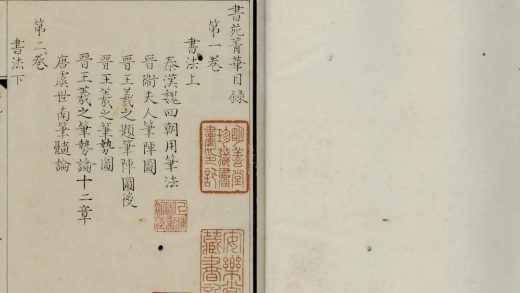 書苑菁華目錄
第一卷
書法上
秦漢魏四朝用筆法
晉衛夫人筆陣圖
晉王羲之題筆陣圖後
晉王羲之筆勢圖
晉王羲之筆勢論十二章
唐虞世南筆髓論
第二卷
書法下
明善堂
珍藏書
畫印記
安樂堂
藏書記